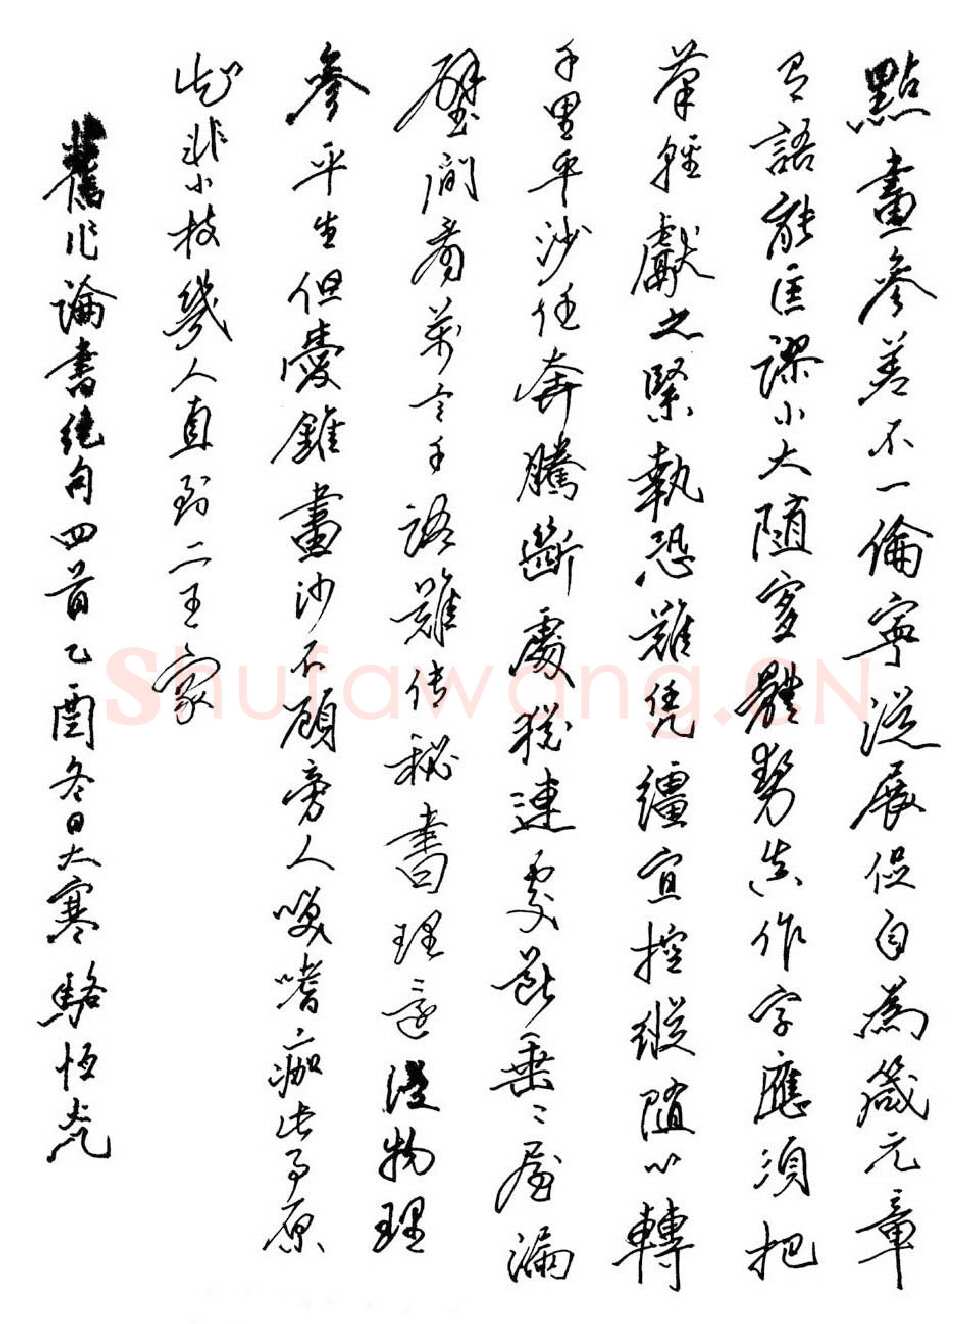 點畫參差不一倫寧從展促自為箴元章
有語能匡謬小大随变體勢真作字應須把
筆輕獻之緊執恐難凭繮宜控縱随心轉
千里平沙任奔騰斷處猶連處斷垂〻屋漏
壁間看萬言千語難传秘書理还從物理
參平生但愛錐畫沙不顧旁人嘆嗜痂此事原
知非小技幾人直到二王家
舊作論書絕句四首乙酉冬日大寒駱恒光
Shufawang.CN